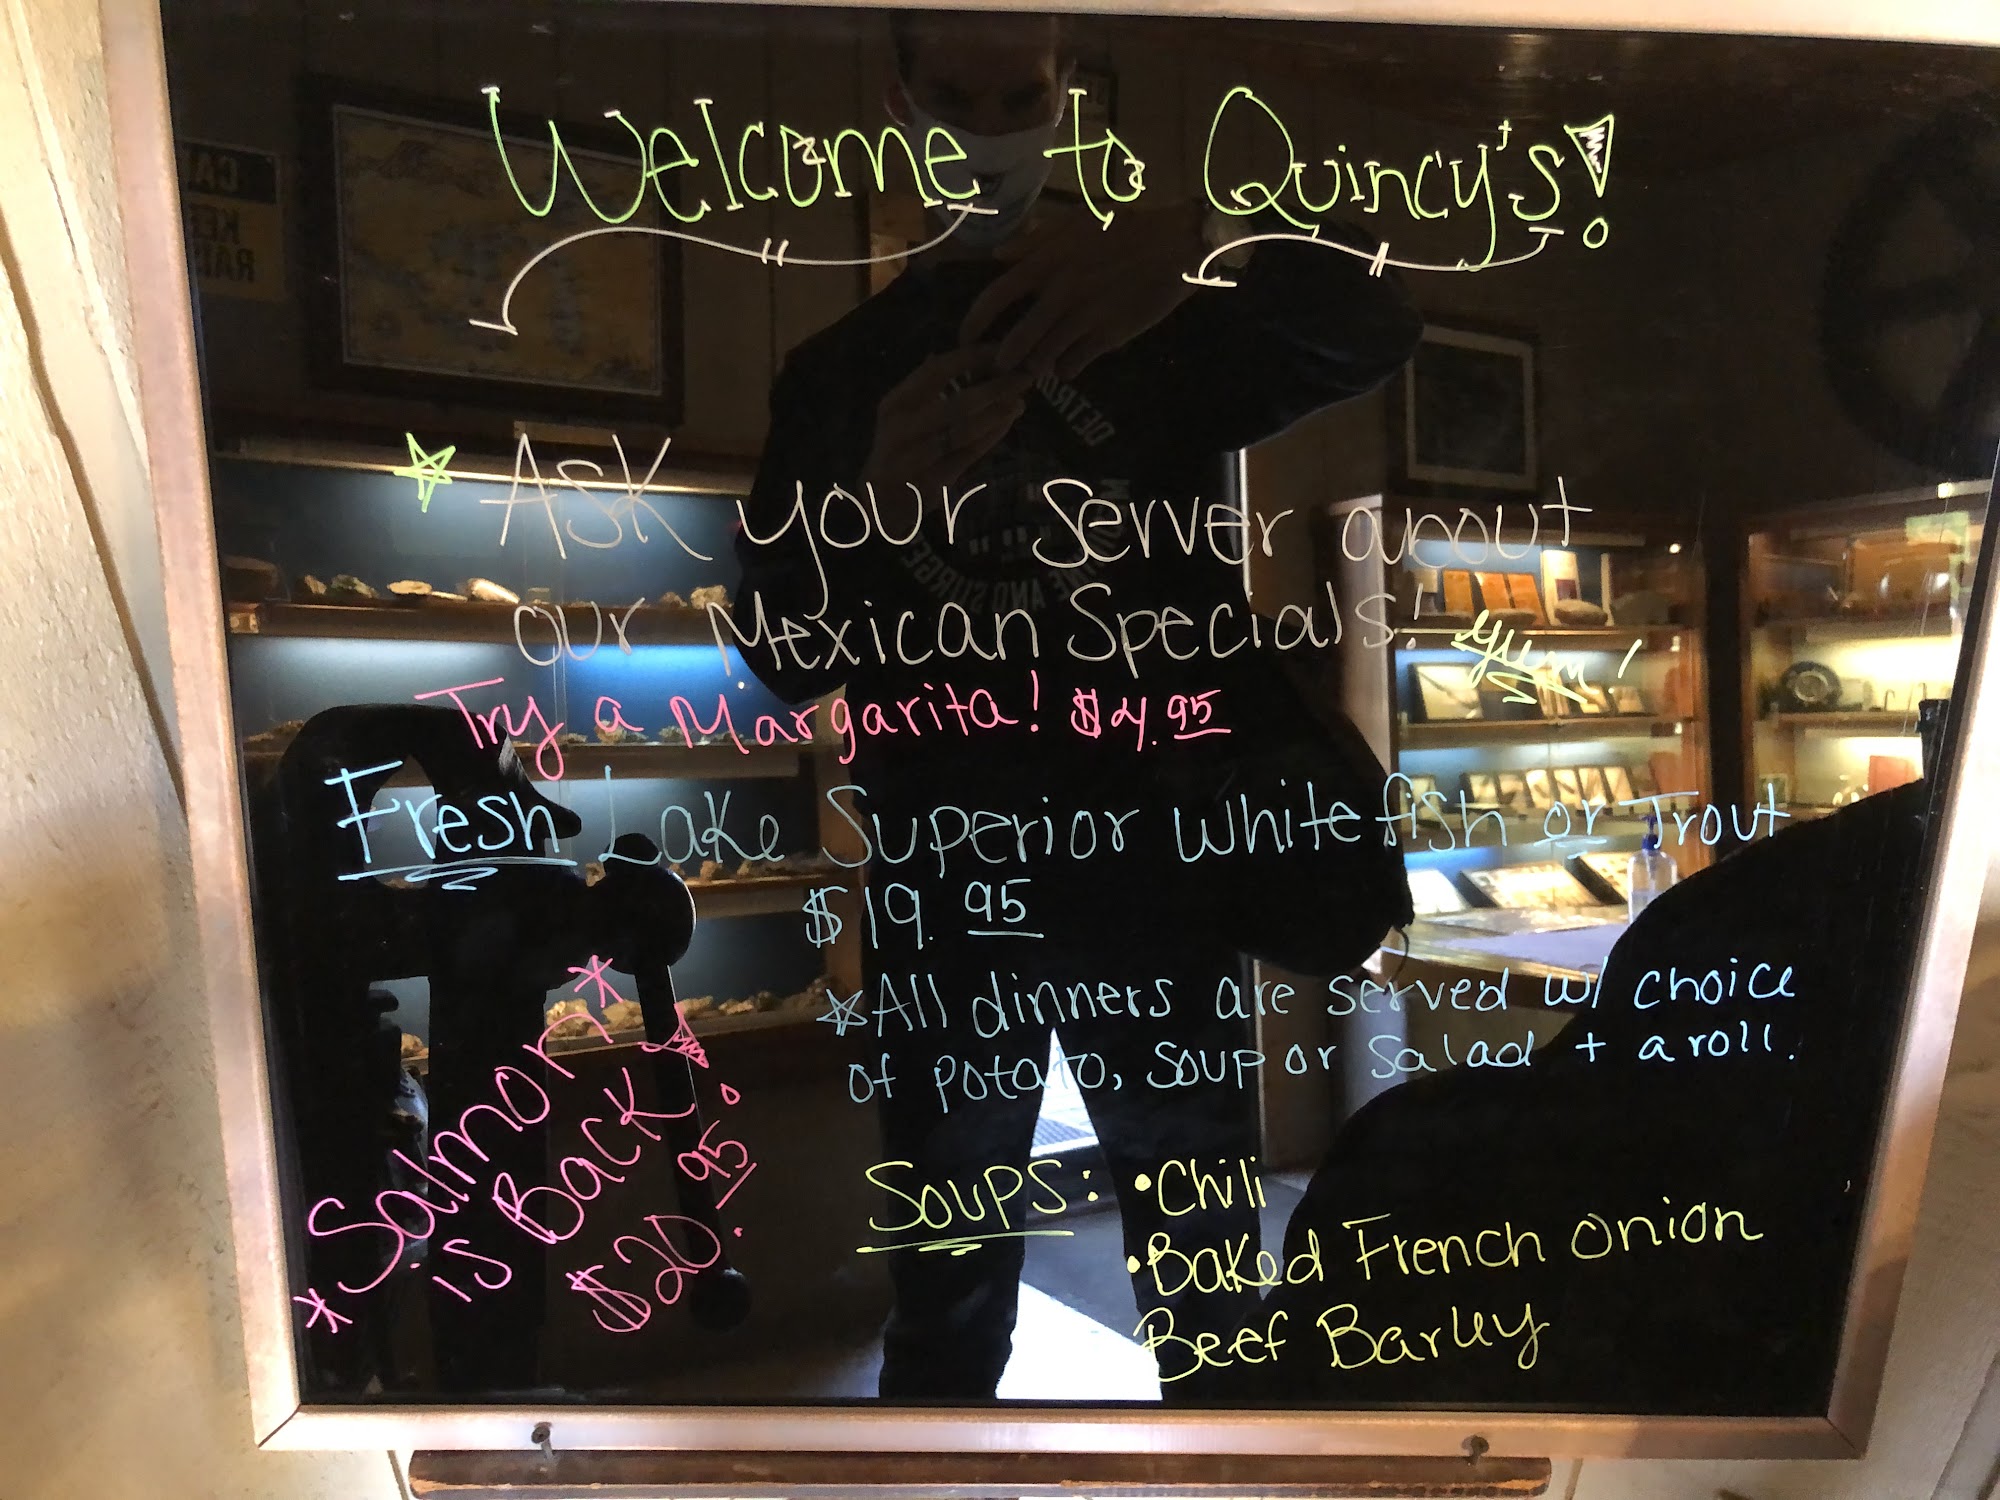 Welcome to Quincy's!
Ask your Server about
our Mexican Specials! yum!
Try a Margarita! $4.95
Fresh Lake Superior Whitefish or Trout
$19.95
All dinners are served w/ choice
of potato, soup or salad + a roll.
* Salmon *
is Back!
$20.95
Soups: • Chili
• Baked French Onion
Beef Barley
DETRO
AND STURGE